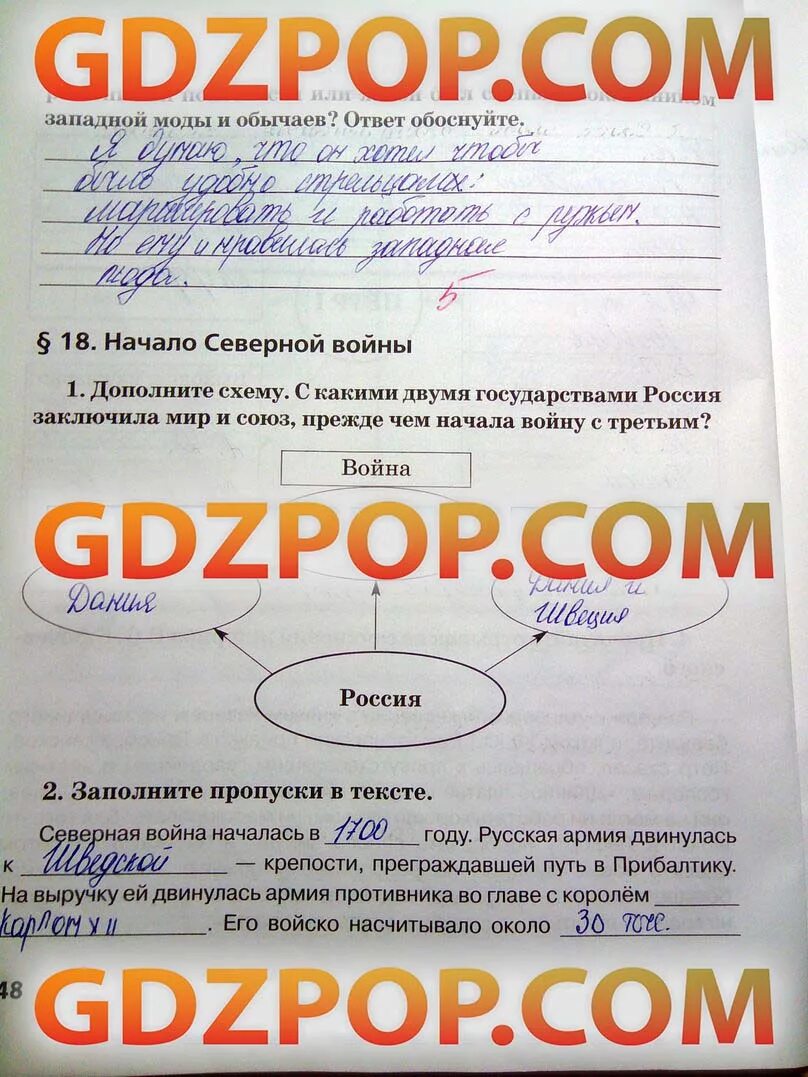 GDZPOP.COM
западной моды и обычаев? Ответ обоснуйте.
Я думаю, что он хотел чтобы
было удобно стрельцам:
маршировать и работать с ружьем.
Но ему и нравилась западная
мода.
5
§ 18. Начало Северной войны
1. Дополните схему. С какими двумя государствами Россия
заключила мир и союз, прежде чем начала войну с третьим?
Война
GDZPOP.COM
Дания
Дания и
Швеция
Россия
2. Заполните пропуски в тексте.
Северная война началась в 1700 году. Русская армия двинулась
к Шведской — крепости, преграждавшей путь в Прибалтику.
На выручку ей двинулась армия противника во главе с королём
Карлом XII. Его войско насчитывало около 30 тыс.
48
GDZPOP.COM